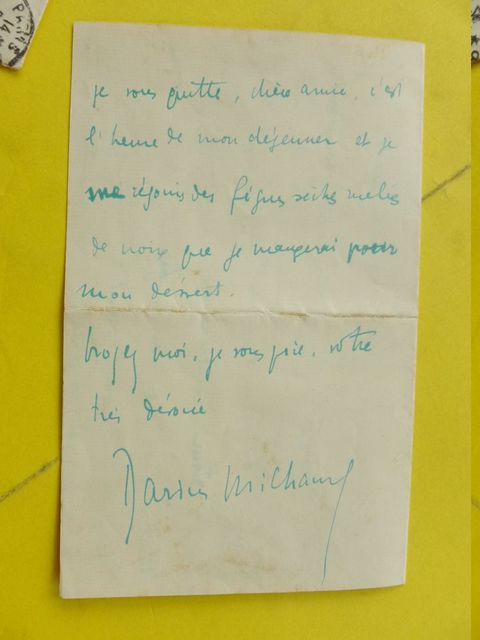 je vous quitte, chère amie, c'est
l'heure de mon déjeuner et je
me réjouis des figues sèches mêlées
de noix que je mangerai pour
mon déssert.
Croyez moi, je vous prie, votre
très dévoué
Darius Milhaud